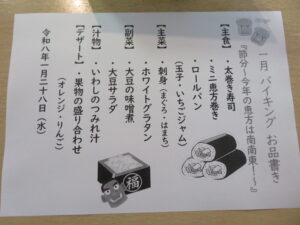 一月 バイキング お品書き
『節分～今年の恵方は南南東！～』
【主食】
・太巻き寿司
・ミニ恵方巻き
・ロールパン
（玉子・いちごジャム）
【主菜】
・刺身（まぐろ・はまち）
・ホワイトグラタン
【副菜】
・大豆の味噌煮
・大豆サラダ
【汁物】
・いわしのつみれ汁
【デザート】
・果物の盛り合わせ
（オレンジ・りんご）
令和八年一月二十八日（水）
福